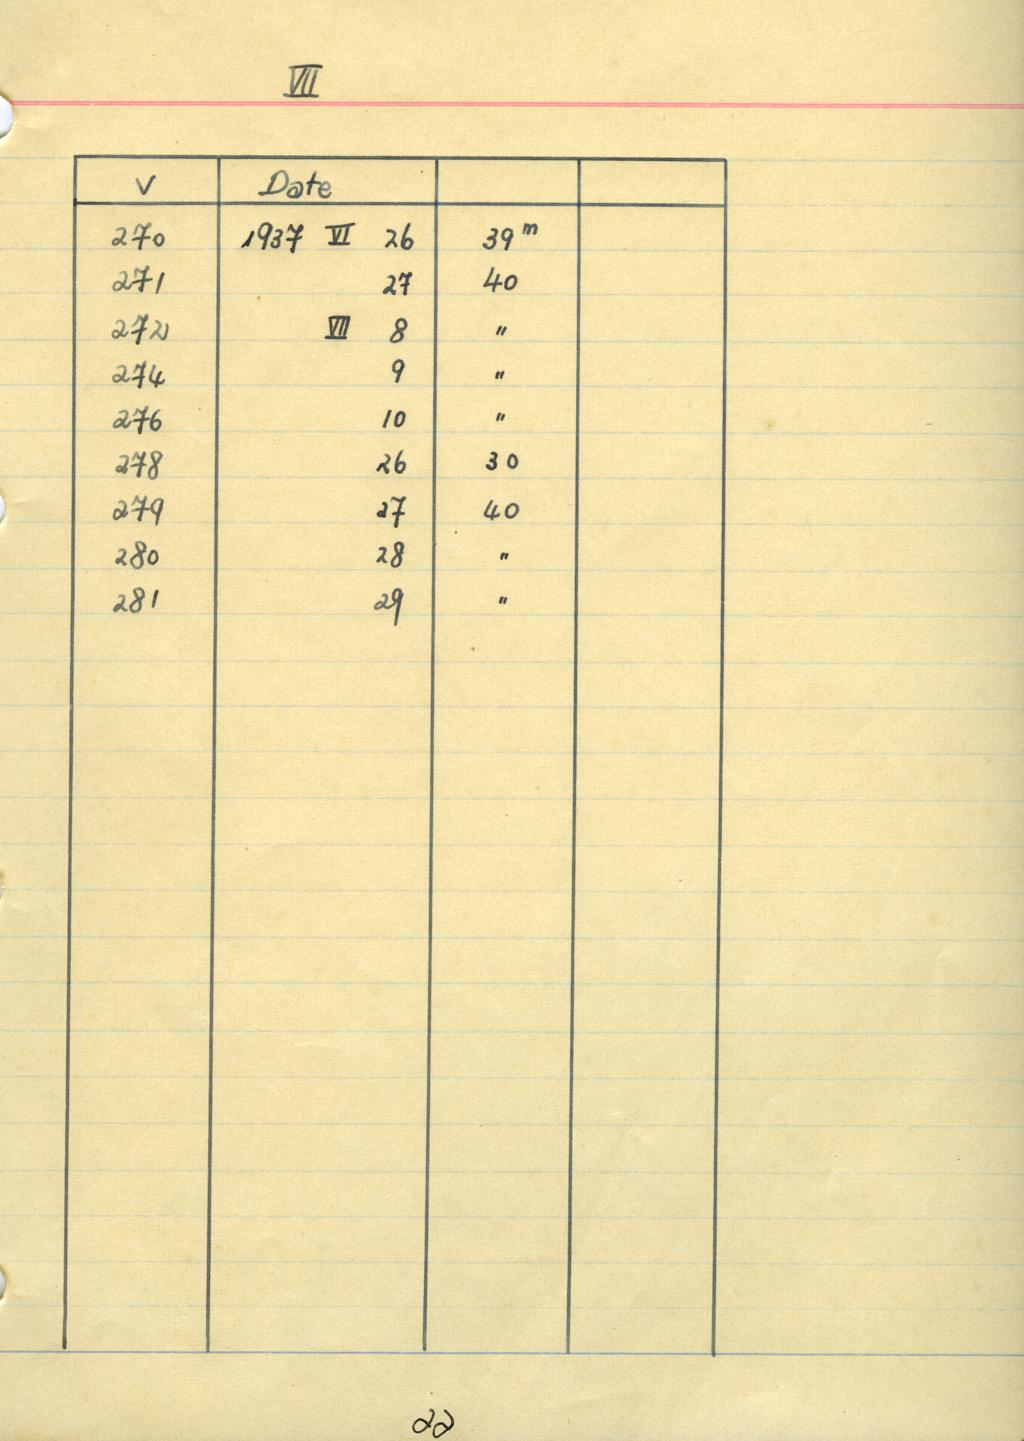 VII
V Date
270 1937 VI 26 39 m
271 27 40
272 VII 8 "
274 9 "
276 10 "
278 26 30
279 27 40
280 28 "
281 29 "
22